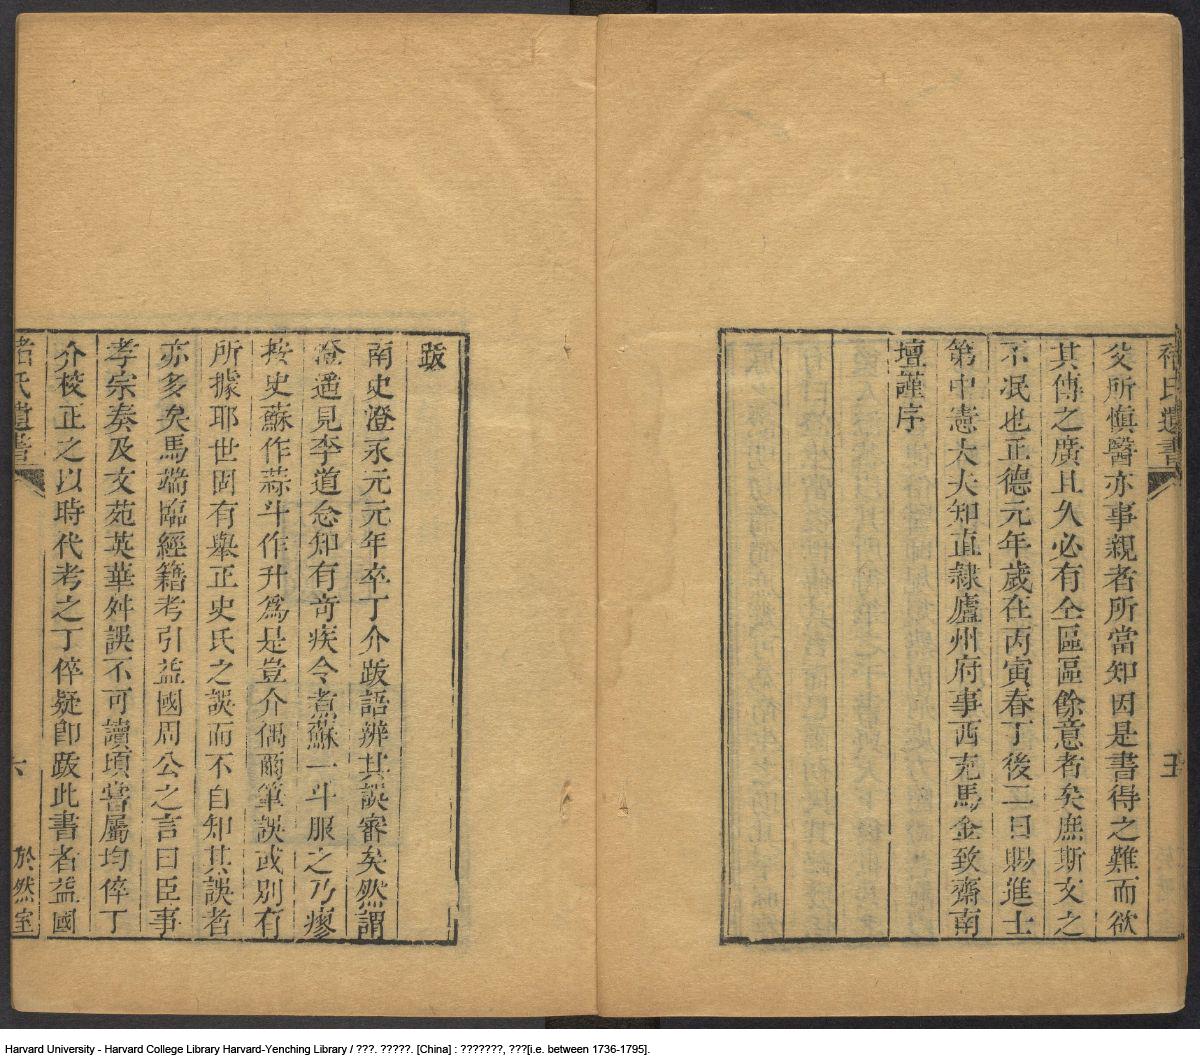 褚氏遺書
五
父所慎醫亦事親者所當知因是書得之難而欲
其傳之廣且久必有仝區區餘意者矣庶斯文之
不泯也正德元年歲在丙寅春丁後二日賜進士
第中憲大夫知直隸廬州府事西充馬金致齋南
壇謹序
跋
南史澄永元元年卒丁介跋語辨其誤審矣然謂
澄遇見李道念知有奇疾令煮蘇一斗服之乃瘳
按史蘇作蒜斗作升爲是豈介偶爾筆誤或別有
所據耶世固有舉正史氏之誤而不自知其誤者
亦多矣馬端臨經籍考引益國周公之言曰臣事
孝宗奏及文苑英華舛誤不可讀頃嘗屬均倅丁
介校正之以時代考之丁倅疑卽跋此書者益國
褚氏遺書
六
於然室
Harvard University - Harvard College Library Harvard-Yenching Library / ???. ?????. [China] : ???????, ???[i.e. between 1736-1795].